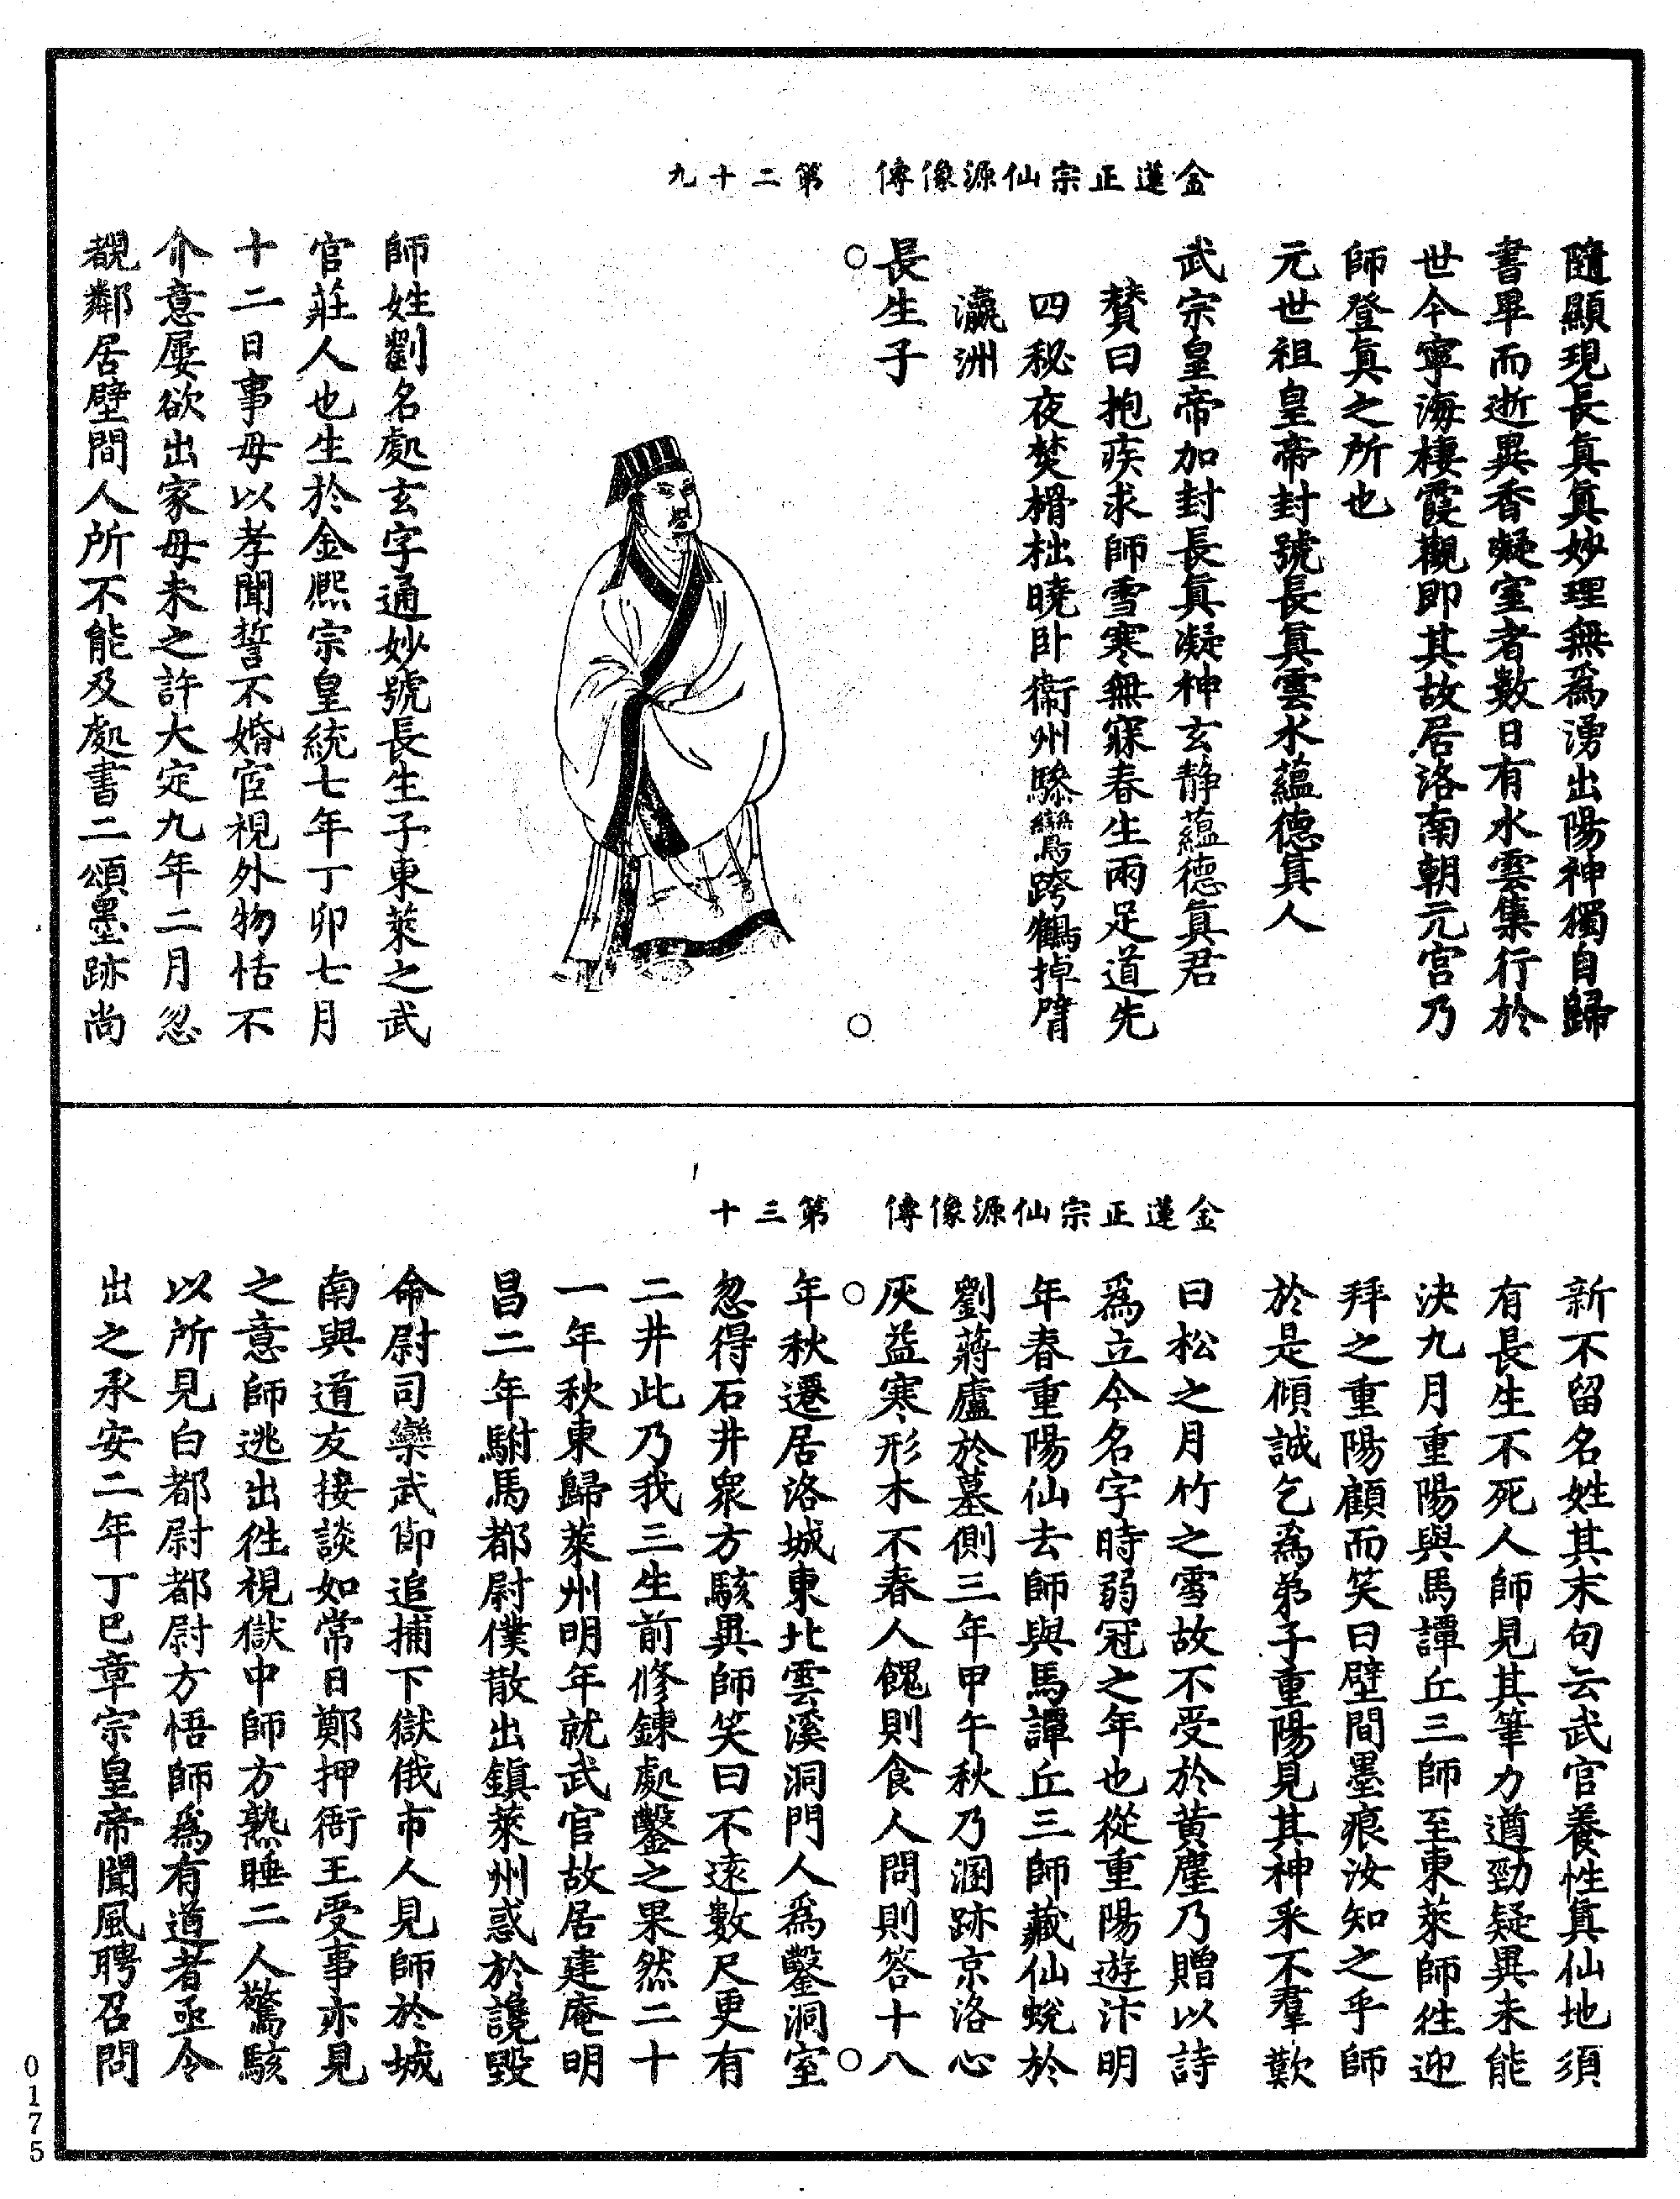 金蓮正宗仙源像傳　第二十九
隨顯現長真真妙理無為湧出陽神獨自歸
書畢而逝異香凝室者數日有水雲集行於
世今寧海棲霞觀即其故居洛南朝元宮乃
師登真之所也
元世祖皇帝封號長真雲水蘊德真人
武宗皇帝加封長真凝神玄静蘊德真君
贊曰抱疾求師雪寒無寐春生兩足道先
四秘夜焚榾柮曉卧衞州驂鸞跨鶴掉臂
瀛洲
長生子
師姓劉名處玄字通妙號長生子東萊之武
官莊人也生於金熈宗皇統七年丁卯七月
十二日事母以孝聞誓不婚宦視外物恬不
介意屢欲出家母未之許大定九年二月忽
覩鄰居壁間人所不能及處書二頌墨跡尚
金蓮正宗仙源像傳　第三十
新不留名姓其末句云武官養性真仙地須
有長生不死人師見其筆力遒勁疑異未能
決九月重陽與馬譚丘三師至東萊師徃迎
拜之重陽顧而笑曰壁間墨痕汝知之乎師
於是傾誠乞為弟子重陽見其神釆不羣歎
曰松之月竹之雪故不受於黄塵乃贈以詩
為立今名字時弱冠之年也從重陽遊汴明
年春重陽仙去師與馬譚丘三師藏仙蛻於
劉蔣廬於墓側三年甲午秋乃溷跡京洛心
灰益寒形木不春人餽則食人問則答十八
年秋遷居洛城東北雲溪洞門人為鑿洞室
忽得石井衆方駭異師笑曰不遠數尺更有
二井此乃我三生前修鍊處鑿之果然二十
一年秋東歸萊州明年就武官故居建庵明
昌二年駙馬都尉僕散出鎮萊州惑於讒毀
命尉司欒武節追捕下獄俄市人見師於城
南與道友接談如常日鄭押衙王受事亦見
之意師逃出徃視獄中師方熟睡二人驚駭
以所見白都尉都尉方悟師為有道者亟令
出之承安二年丁巳章宗皇帝聞風聘召問
0175